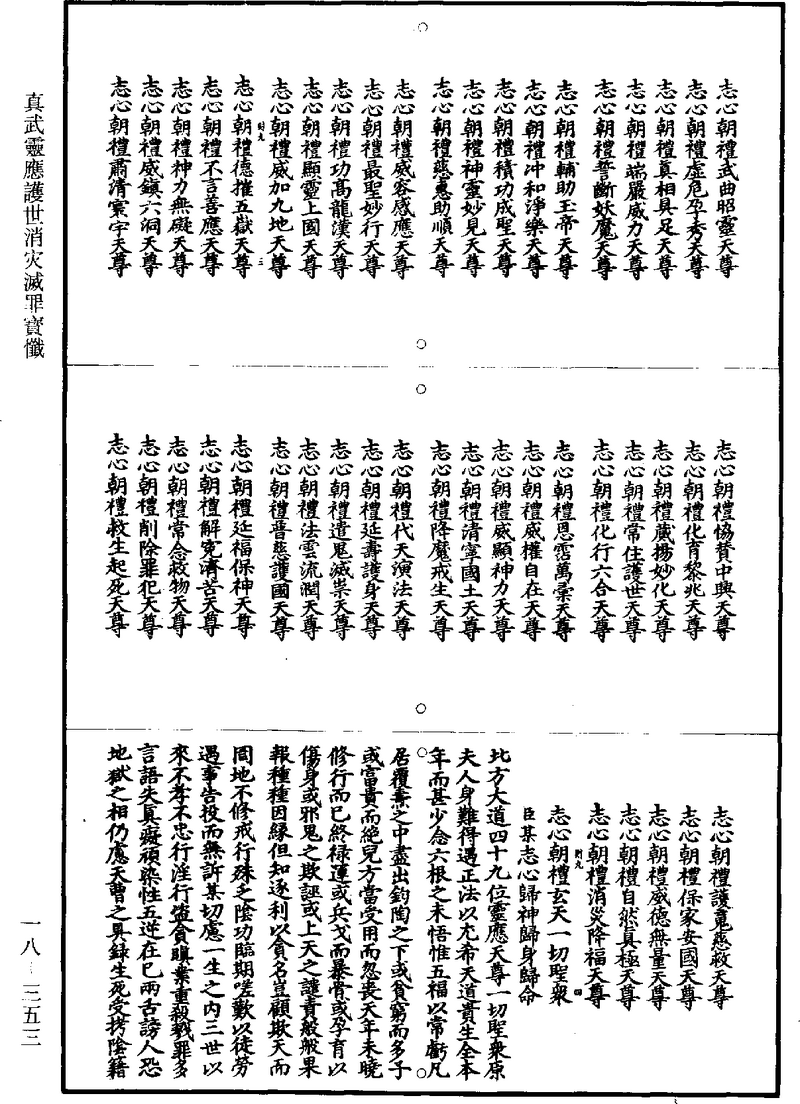 真武靈應護世消灾滅罪寶懺
一八·三五三
志心朝禮武曲昭靈天尊
志心朝禮虛危孕秀天尊
志心朝禮真相具足天尊
志心朝禮端嚴威力天尊
志心朝禮誓斷妖魔天尊
志心朝禮輔助玉帝天尊
志心朝禮冲和淨樂天尊
志心朝禮積功成聖天尊
志心朝禮神靈妙見天尊
志心朝禮慈惠助順天尊
志心朝禮威容感應天尊
志心朝禮最聖妙行天尊
志心朝禮功高龍漢天尊
志心朝禮顯靈上國天尊
志心朝禮威加九地天尊
志心朝禮德摧五嶽天尊
志心朝禮不言善應天尊
志心朝禮神力無礙天尊
志心朝禮威鎮六洞天尊
志心朝禮肅清寰宇天尊
志心朝禮協贊中興天尊
志心朝禮化育黎兆天尊
志心朝禮蕆揚妙化天尊
志心朝禮常住護世天尊
志心朝禮化行六合天尊
志心朝禮恩霑萬彙天尊
志心朝禮威權自在天尊
志心朝禮威顯神力天尊
志心朝禮清寧國土天尊
志心朝禮降魔戒生天尊
志心朝禮代天演法天尊
志心朝禮延壽護身天尊
志心朝禮遣鬼滅祟天尊
志心朝禮法雲流潤天尊
志心朝禮普慈護國天尊
志心朝禮延福保神天尊
志心朝禮解冤濟苦天尊
志心朝禮常念救物天尊
志心朝禮削除罪犯天尊
志心朝禮救生起死天尊
志心朝禮護寃慈救天尊
志心朝禮保家安國天尊
志心朝禮威德無量天尊
志心朝禮自然真極天尊
志心朝禮消災降福天尊
志心朝禮玄天一切聖衆
臣某志心歸神歸身歸命
北方大道四十九位靈應天尊一切聖衆原
夫人身難得遇正法以尤希天道貴生全本
年而甚少念六根之未悟惟五福以常虧凡
居覆燾之中盡出鈞陶之下或貧窮而多子
或富貴而絶兒方當受用而忽喪天年未曉
修行而已終禄運或兵戈而暴骨或孕育以
傷身或邪鬼之欺誣或上天之譴責般般果
報種種因緣但知逐利以貪名豈顧欺天而
罔地不修戒行殊乏陰功臨期嗟歎以徒勞
遇事告投而無訴某切慮一生之内三世以
來不孝不忠行淫行盜貪瞋業重殺戮罪多
言語失真癡頑染性五逆在已兩舌謗人恐
地獄之相仍慮天曹之具録生死受拷陰籍